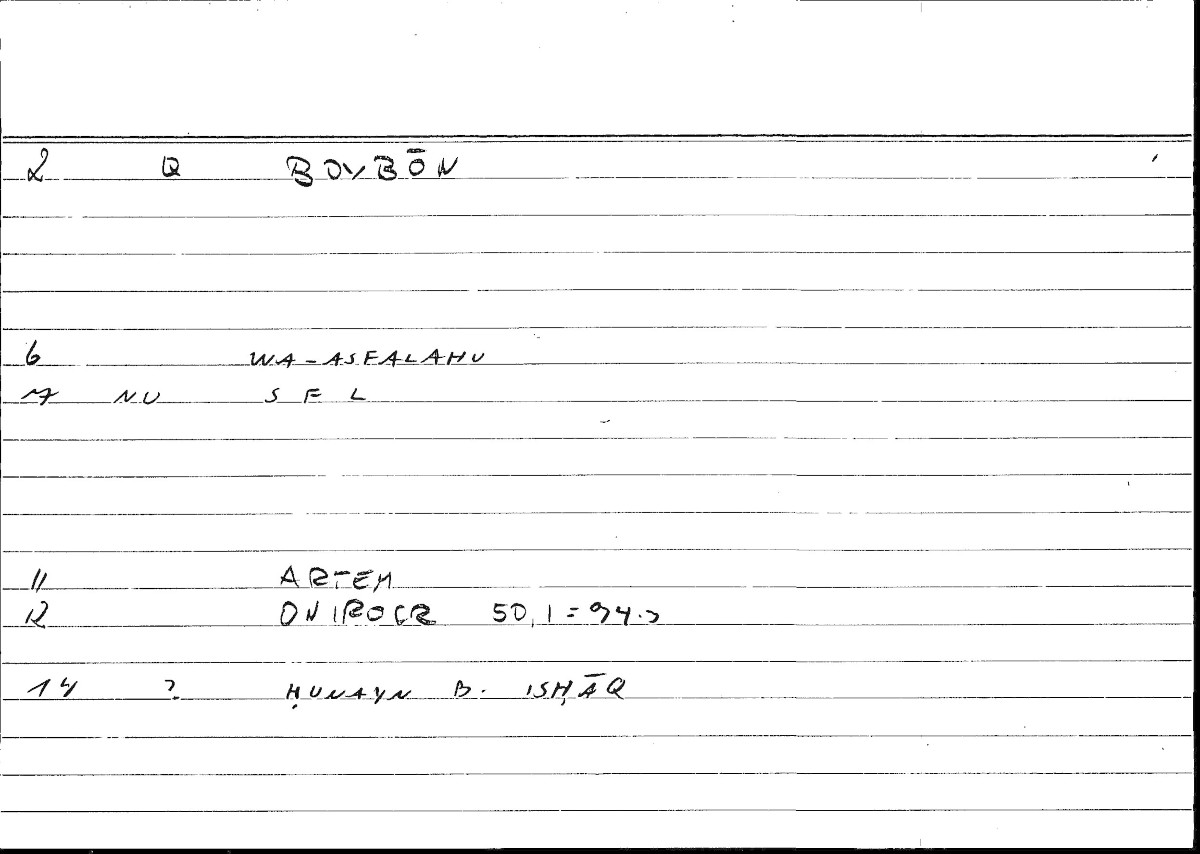 2 Q BOYBŌN
6 WA-ASFALAHU
7 NU S F L
11 ARTEM
12 ONIROCR 50,1 = 94.2
14 ? ḤUNAYN B. ISḤĀQ